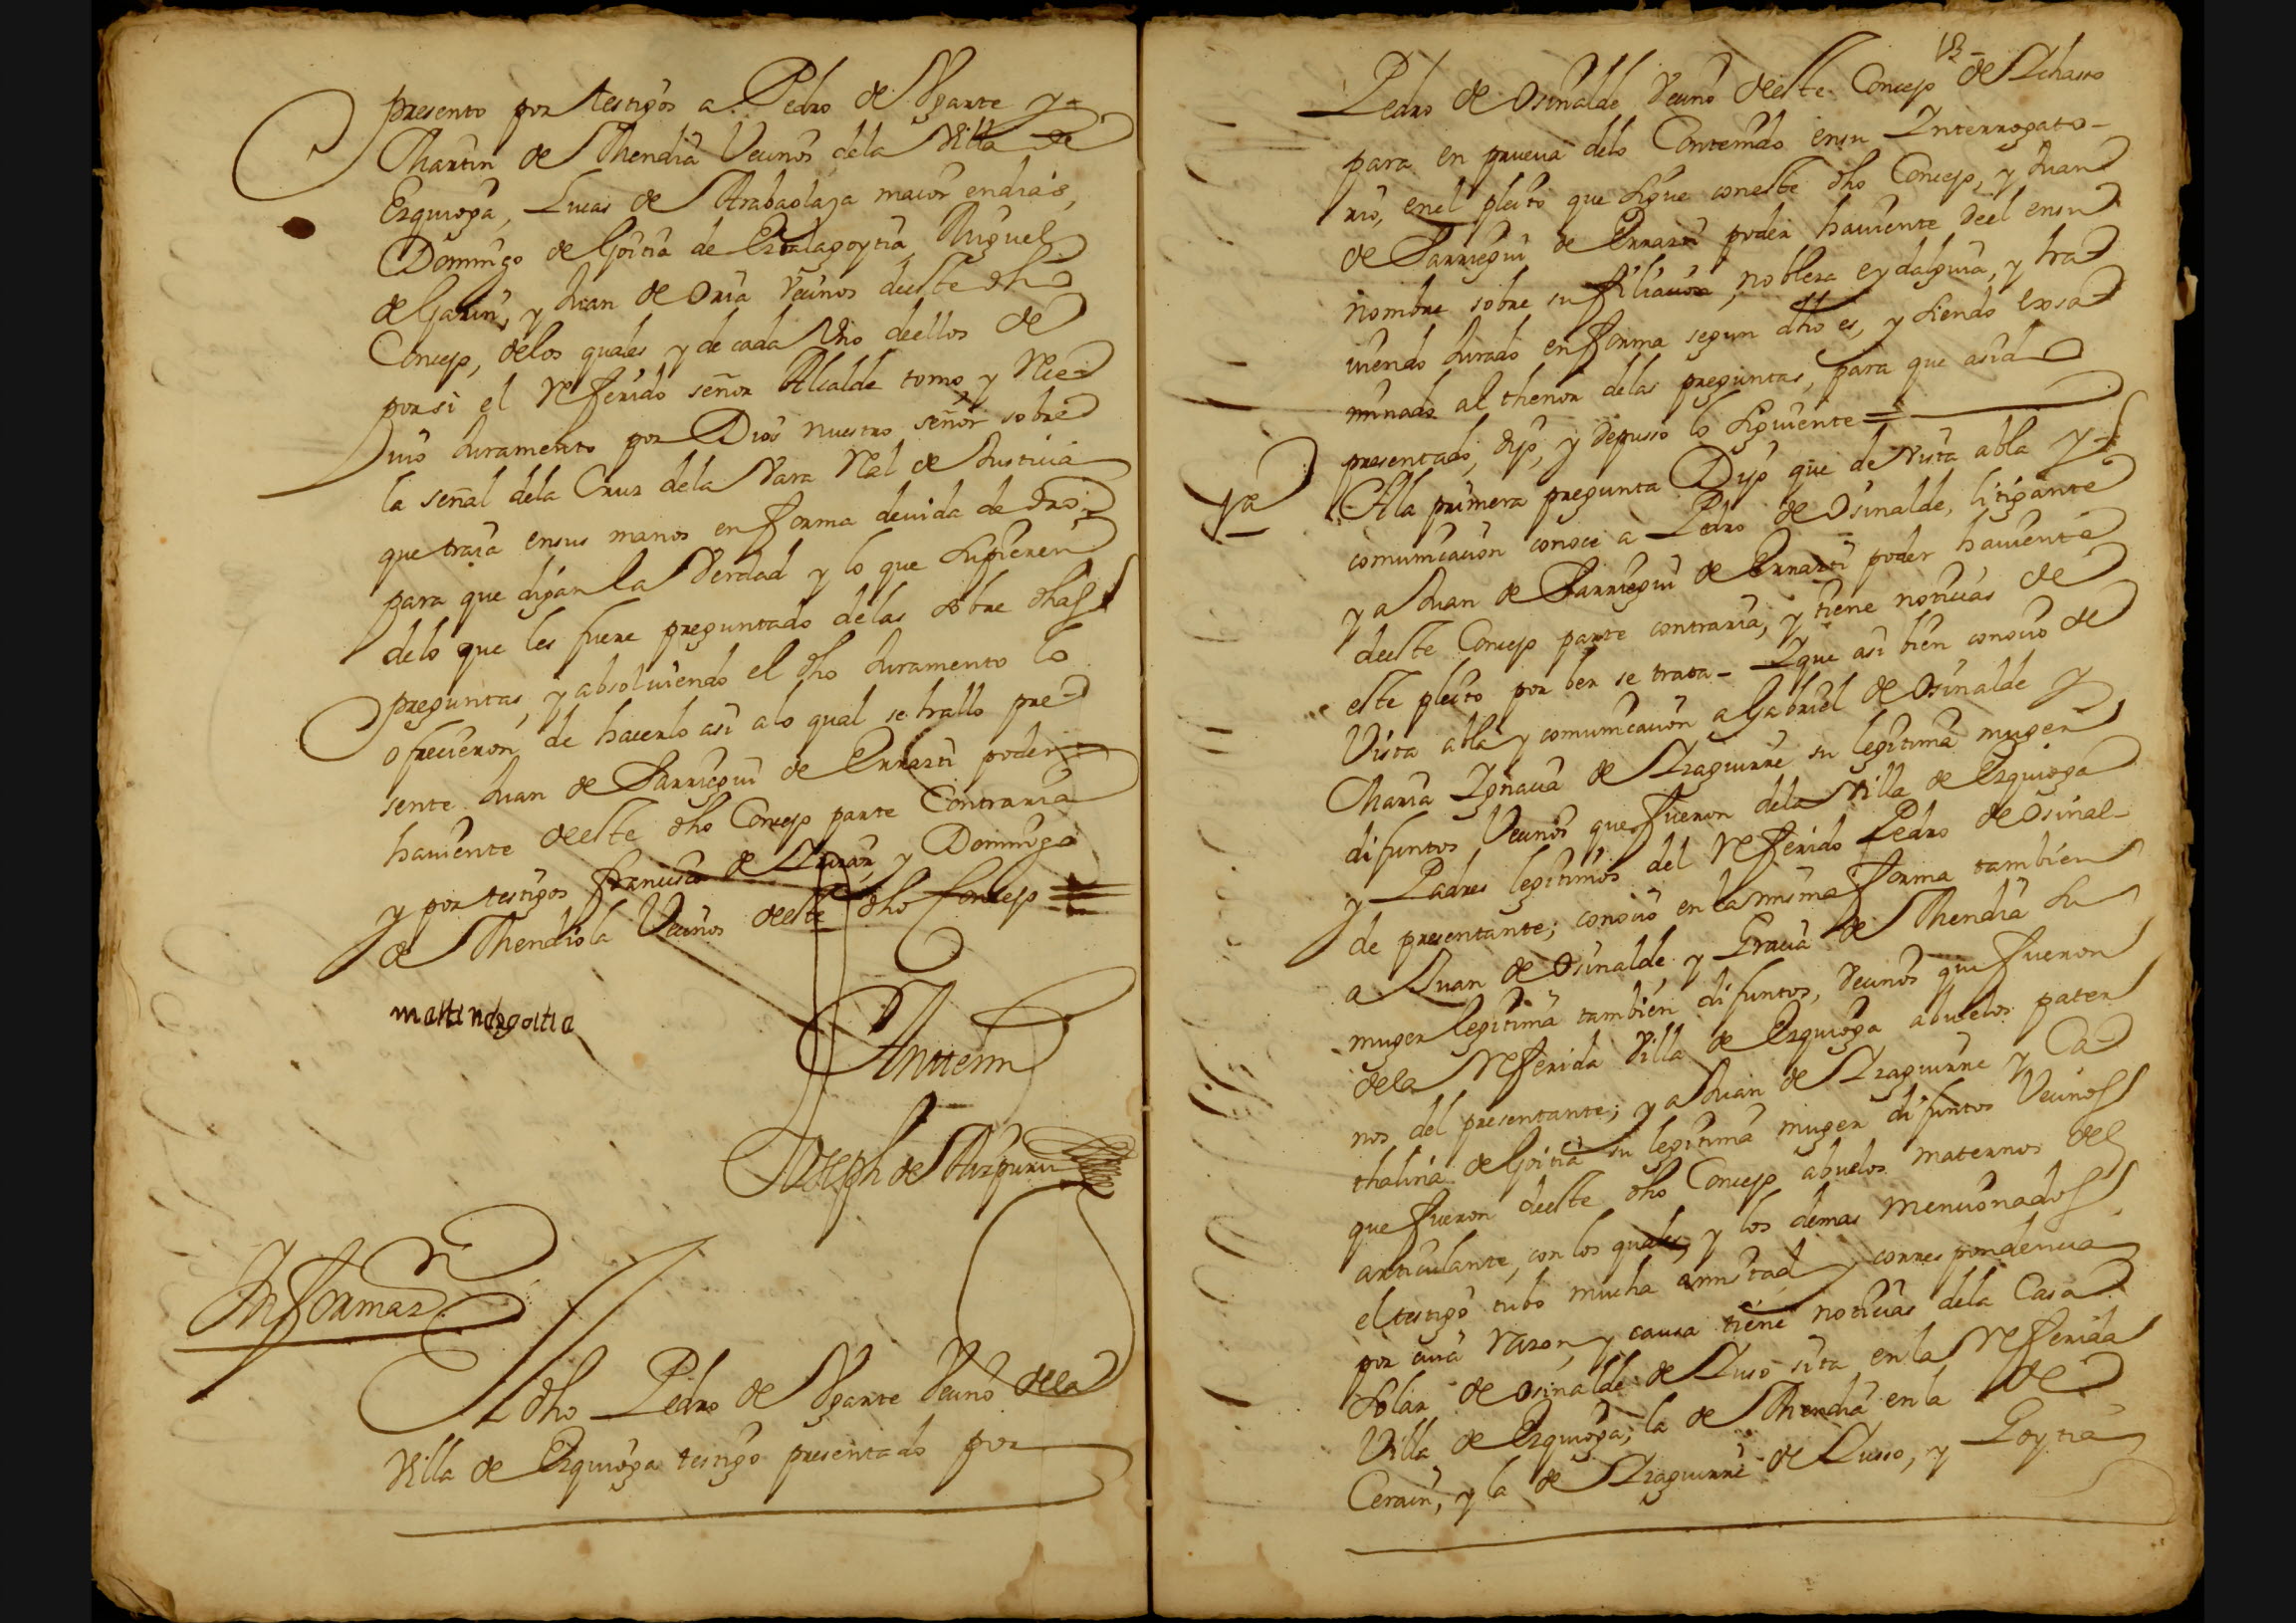 presento por testigos a Pedro de Vgarte y
Martin de Mendia Vecinos dela Villa de
Ezquioga, Lucas de Arabaolaza maior endias,
Domingo de Goitia de Eizalagoytia, Miguel
de Garin, y Juan de Oria Vecinos deeste dho
Concejo, delos quales y de cada Vno deellos de
porsi el Referido señor Alcalde tomo y Reci
uio Juramento por Dios nuestro señor sobre
la señal dela Cruz dela Vara Rl de Justicia
que traia ensus manos en forma deuida de dro
para que digan la Verdad y lo que Supieren
delo que les fuere preguntado delas sobre dhas
preguntas, y absoluiendo el dho Juramento lo
ofrecieron de hacerlo asi alo qual se hallo pre
sente Juan de Barriegui de Errazti poder
hauiente deeste dho Concejo parte Contraria
y por testigos francisco de y Domingo
de Mendiola Vecinos deeste dho Concejo
martin de goitia
Antemi
Joseph de Aizpuru
Informaz.n
El dho Pedro de Vgarte Vecino dela
Villa de Ezquioga testigo presentado por
Pedro de Osinalde Vecino deeste Concejo de Ichaso
para en prueua delo Contenido ensu Interrogato-
rio, enel pleito que sigue coneste dho Concejo, y Juan
de Barriegui de Errazti poder hauiente deel ensu
nombre sobre su filiacion, nobleza eydalguia, y ha
uiendo Jurado en forma segun dho es, y siendo exsa
minado al thenor delas preguntas, para que asido
presentado, dijo, y depusso lo siguiente =
1a
Ala primera pregunta Dijo que de vista abla y
comunicacion conoce a Pedro de Osinalde, litigante
y a Juan de Barriegui de Errazti poder hauiente
deeste Concejo parte contraria, y tiene noticias de
este pleito por ber se trata - Y que asi bien conocio de
Vista abla y comunicacion a Gabriel de Osinalde y
Maria Ignacia de Izaguirre su legitima muger
difuntos Vecinos que fueron dela Villa de Ezquioga
y Padres legitimos del Referido Pedro de Osinal-
de presentante; conocio en la misma forma tambien
a Juan de Osinalde y Gracia de Mendia su
muger legitima tambien difuntos, Vecinos que fueron
dela Referida Villa de Ezquioga abuelos pater
nos del presentante; y a Juan de Izaguirre y Ca
thalina de Goitia su legitima muger difuntos Vecinos
que fueron deeste dho Concejo abuelos maternos del
articulante, con los quales, y los demas mencionados
el testigo tubo mucha amistad y correspondencia
por cuia razon, y causa tiene noticias dela Casa
Solar de Osinalde de Suso sita en la Referida
Villa de Ezquioga; la de Mendia en la de
Cerain, y la de Izaguirre de Susso, y Goytia